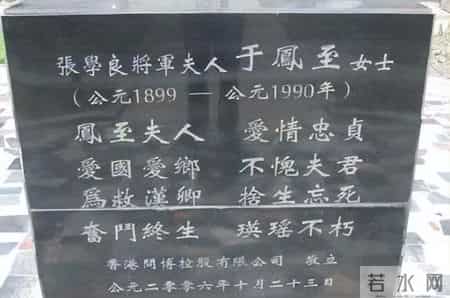 張學良將軍夫人于鳳至女士
(公元1899 — 公元1990年)
鳳至夫人 愛情忠貞
愛國愛鄉 不愧夫君
爲救漢卿 捨生忘死
奮鬥終生 瑛瑤不朽
香港開博控股有限公司 敬立
公元二零零六年十月二十三日
若水网